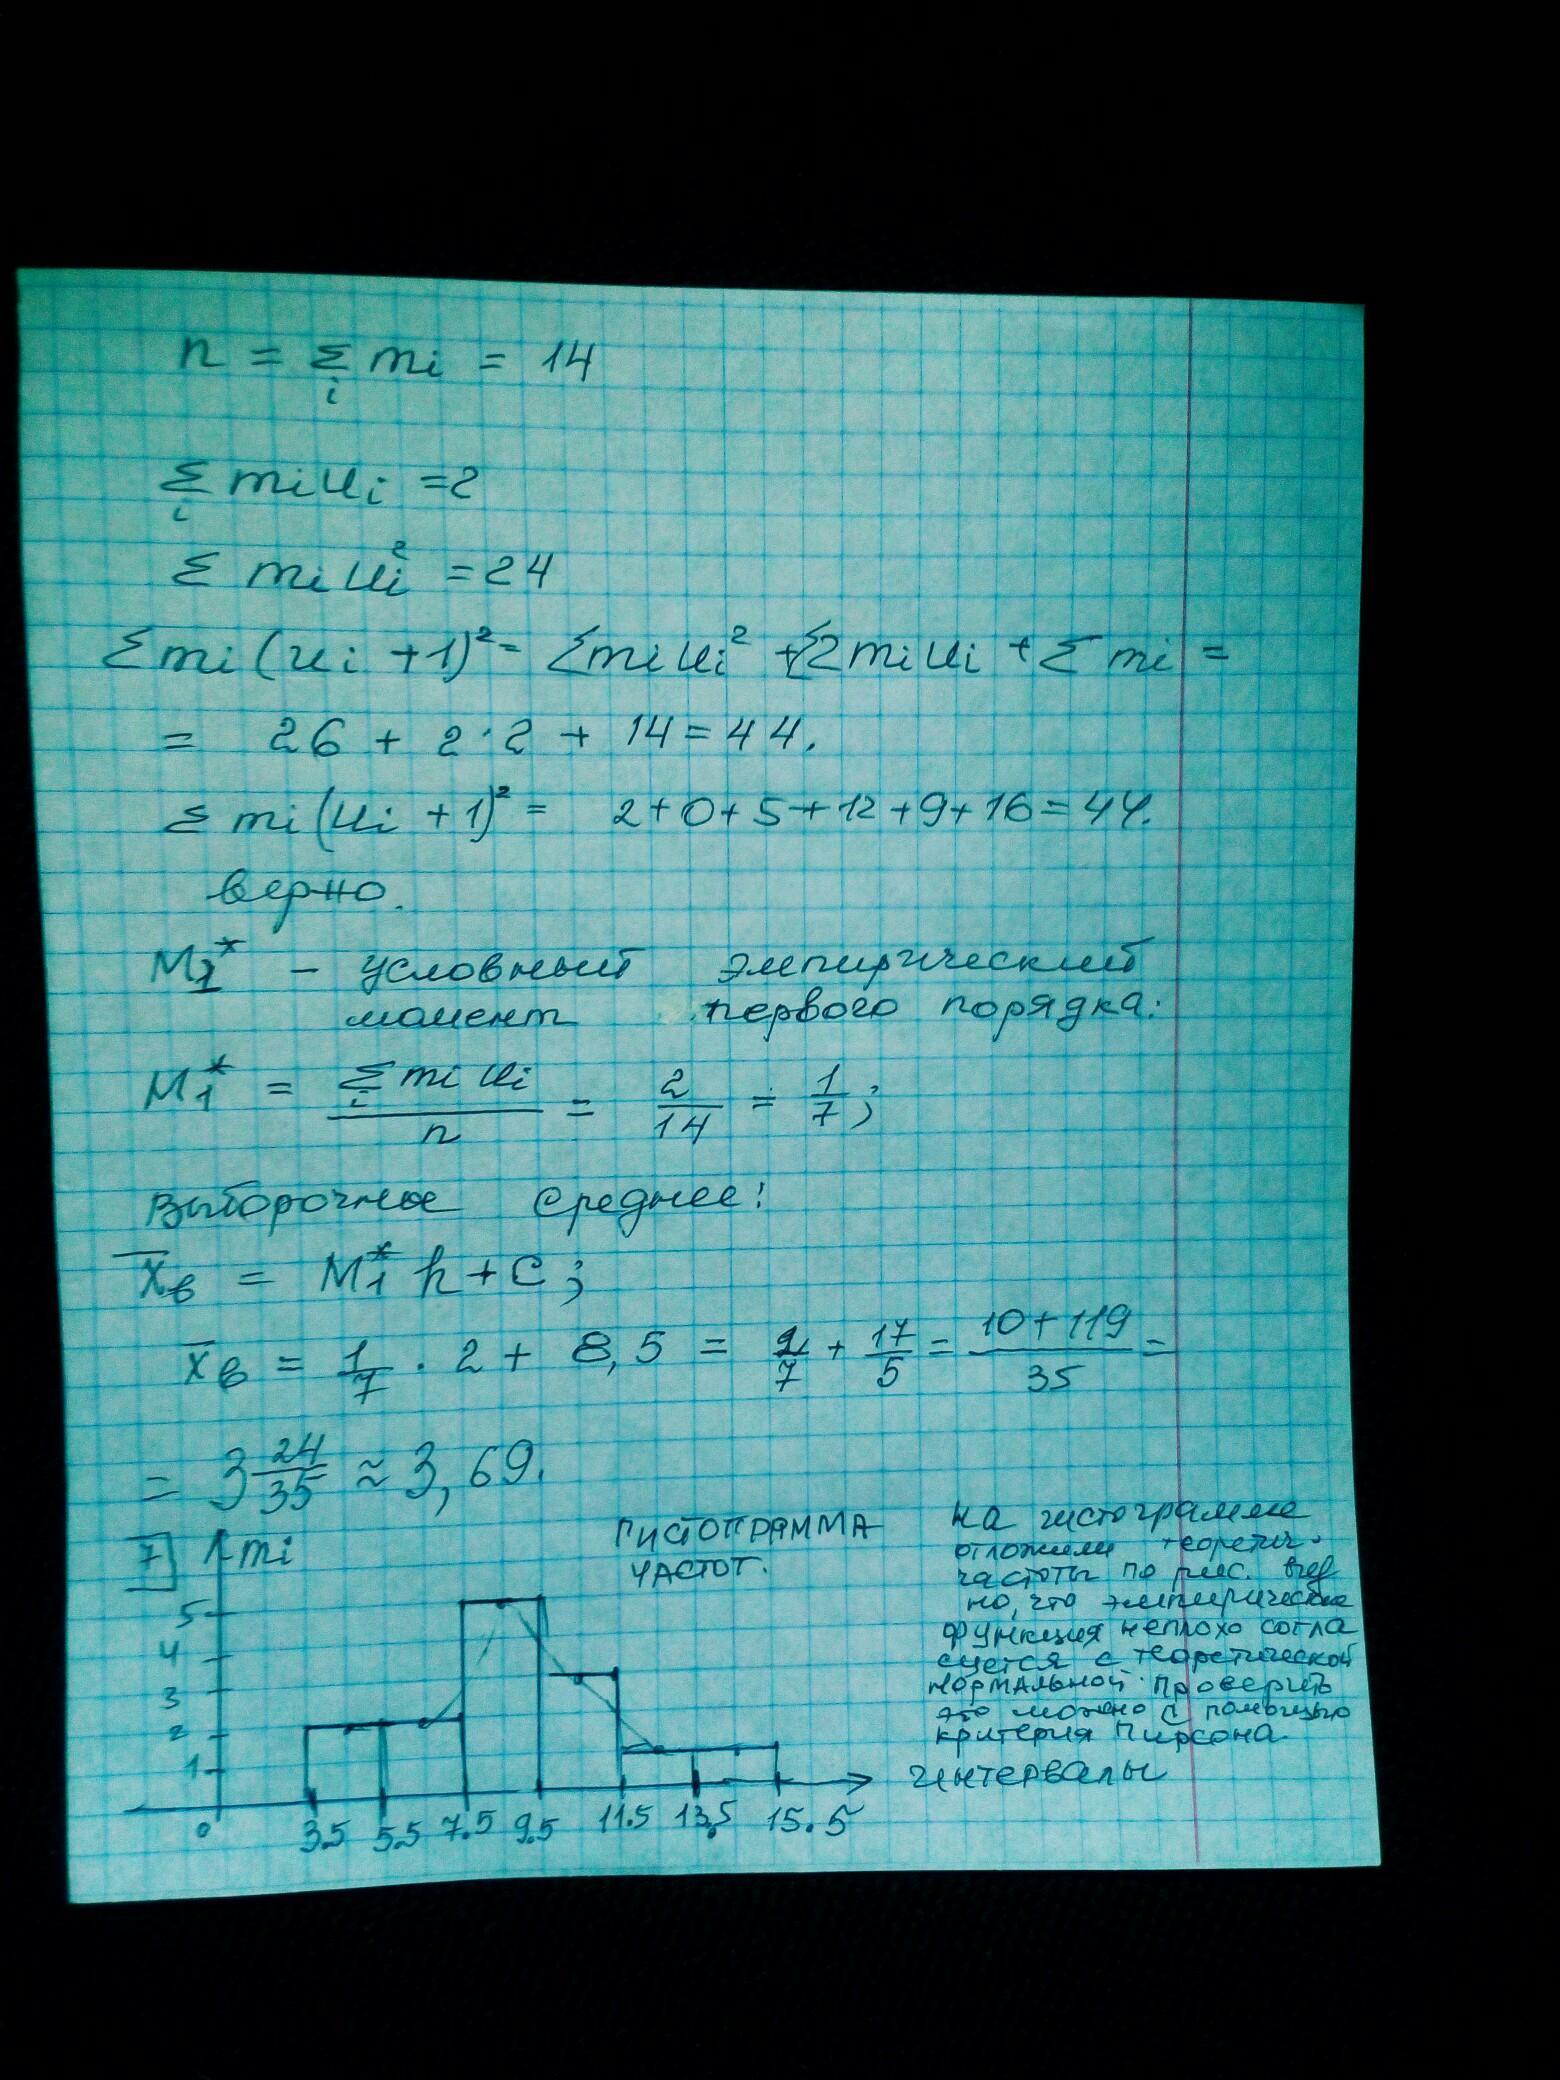 n = Σ mi = 14
i
Σ mi ui = 2
i
Σ mi ui² = 24
Σ mi (ui + 1)² = Σ mi ui² + Σ 2 mi ui + Σ mi =
= 26 + 2·2 + 14 = 44.
Σ mi (ui + 1)² = 2+0+5+12+9+16 = 44.
верно.
M1* – условный эмпирический
момент первого порядка:
M1* = Σ mi ui / n = 2/14 = 1/7;
i
Выборочное среднее:
x̄в = M1* h + C;
x̄в = 1/7 · 2 + 8,5 = 2/7 + 17/5 = (10+119)/35 =
= 3 24/35 ≈ 3,69.
7 mi
ГИСТОГРАММА
ЧАСТОТ.
На гистограмме
отложили теоретич.
частоты по рис. вид
но, что эмпирическая
функция неплохо согла
суется с теоретической
нормальной. Проверить
это можно с помощью
критерия Пирсона.
5
4
3
2
1
интервалы
0 3.5 5.5 7.5 9.5 11.5 13.5 15.5